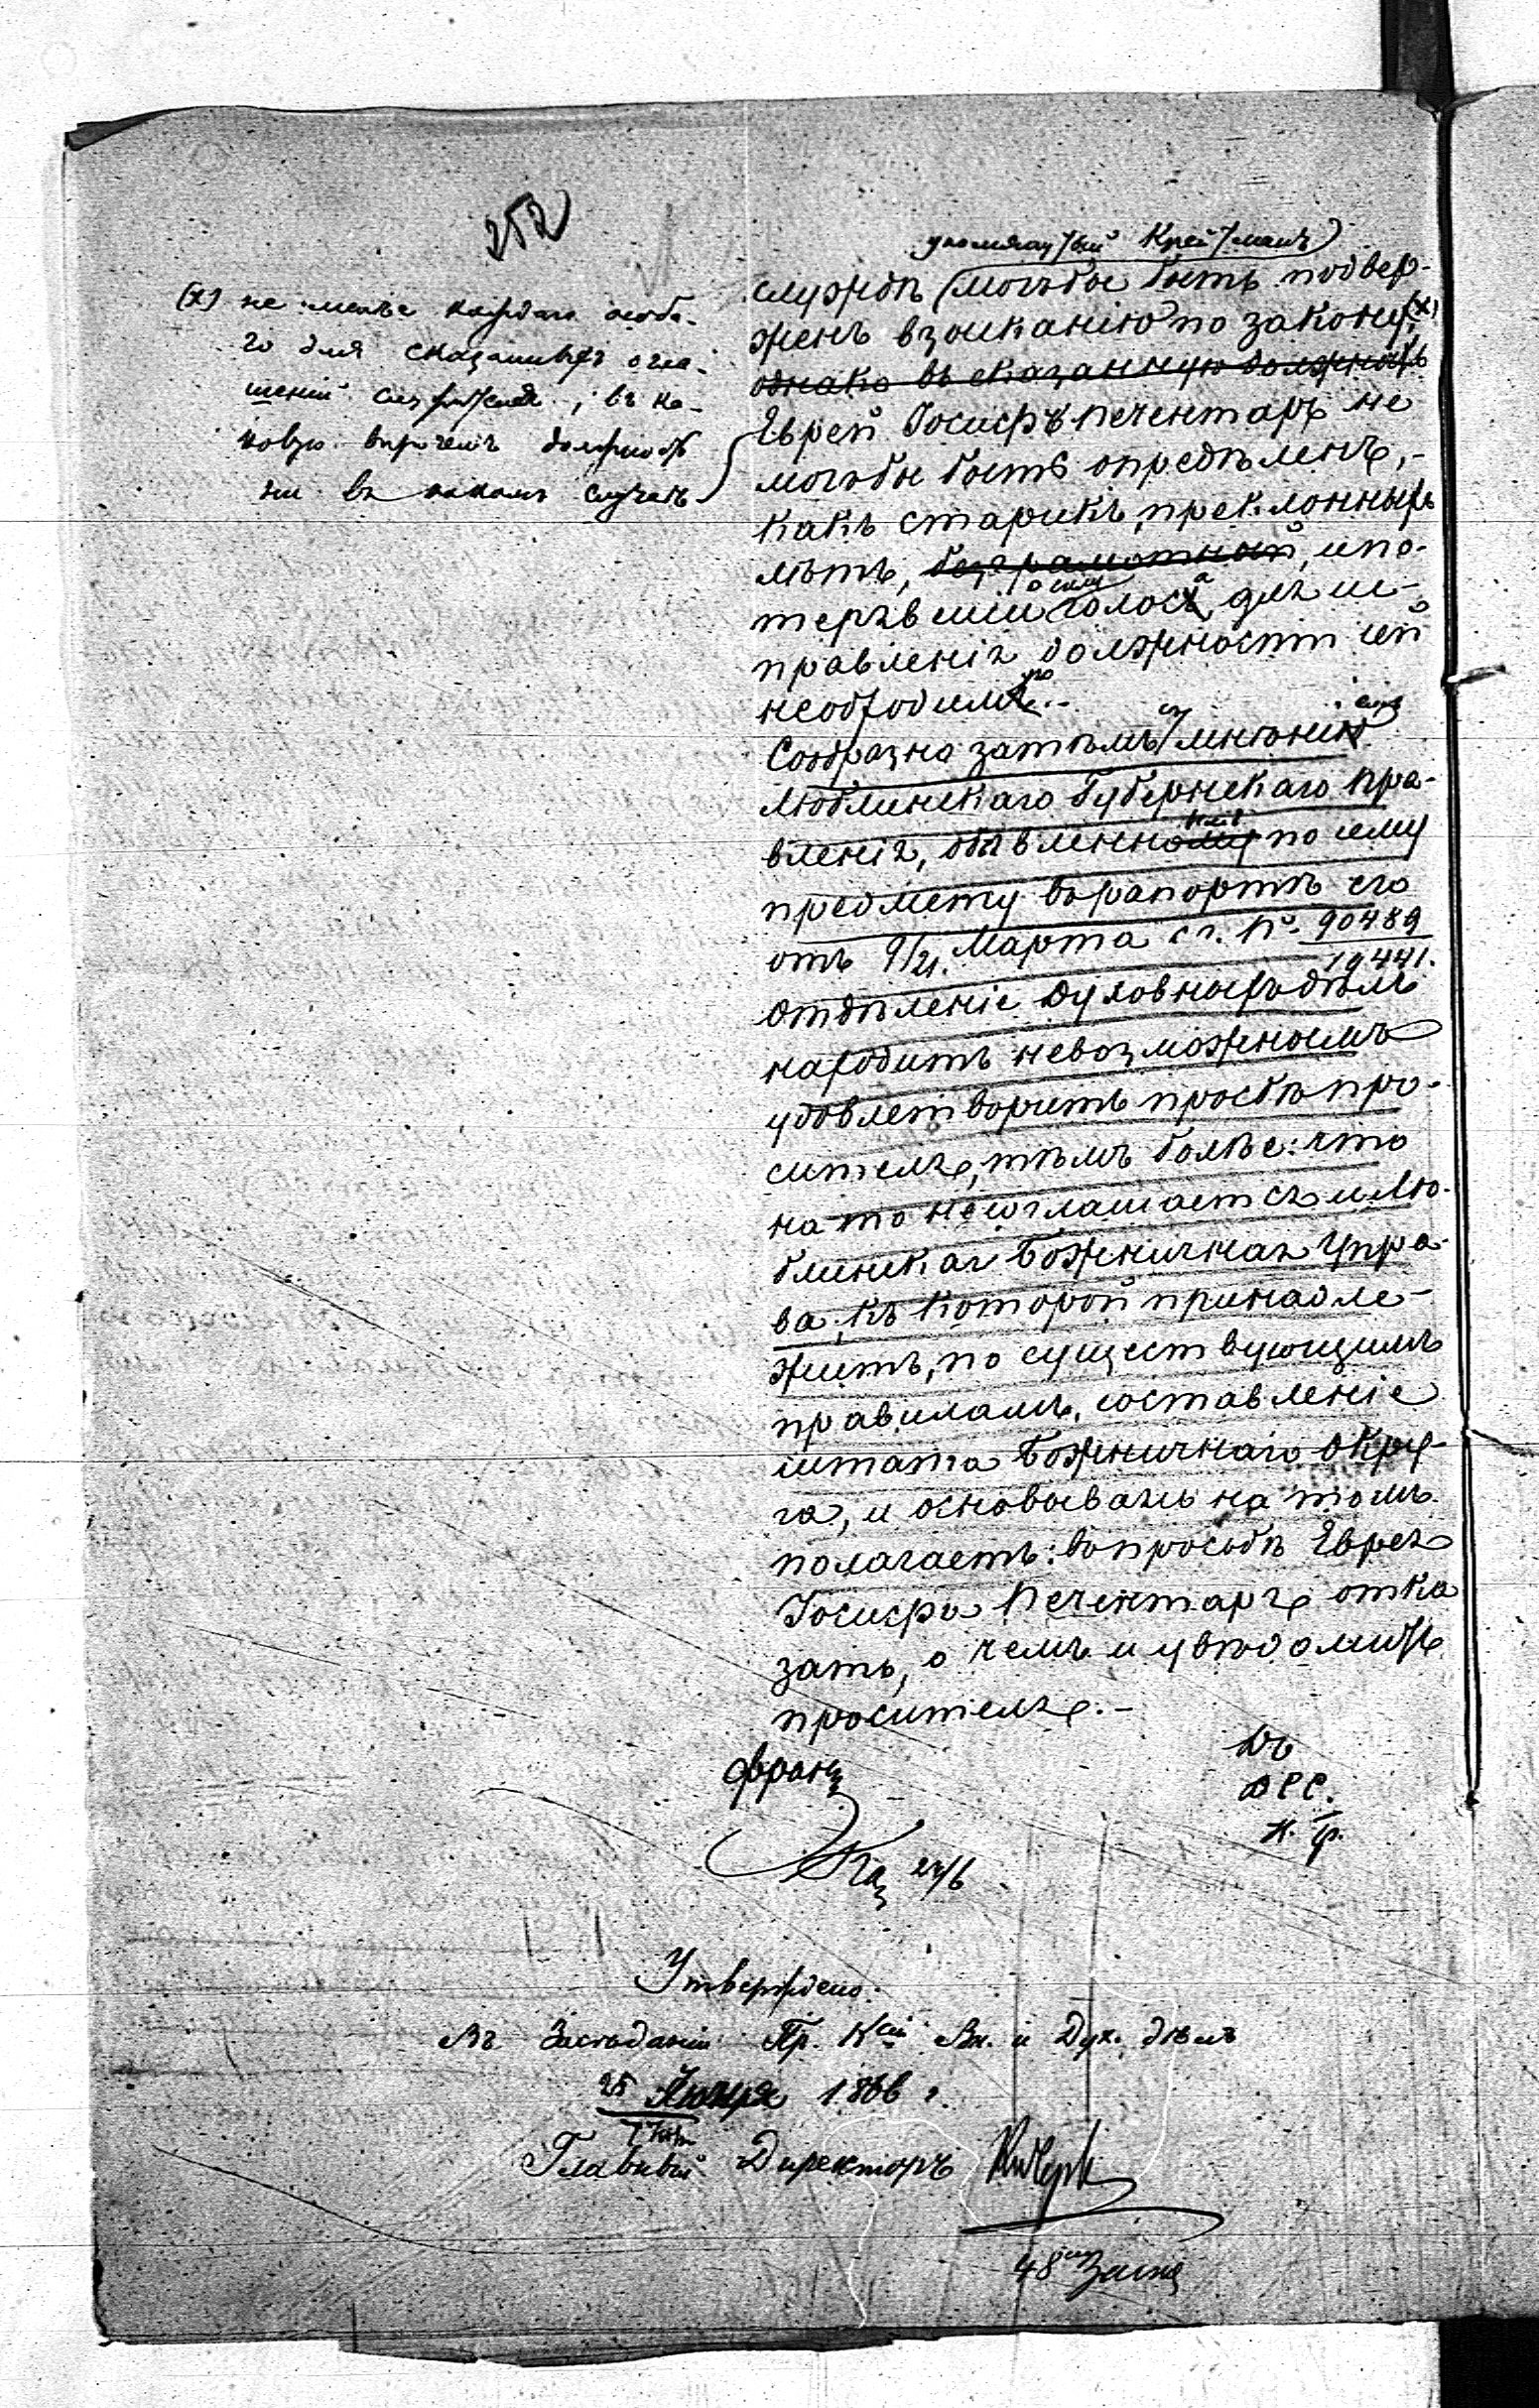 252
(х) не менѣе каждаго особа-
го для сказанныхъ огла-
шеній служителя, въ ка-
ковую впрочемъ должность
ни въ какомъ случаѣ
упомянутый Крейтманъ
службѣ могъ бы быть подвер-
женъ взысканію по закону, (х)
однако въ сказанную должность
Еврей Іосифъ Печентаръ не
могъ бы быть опредѣленъ,-
какъ старикъ, преклонныхъ
лѣтъ, безграмотный, и по-
терявшій силу голоса, для ис-
правленія должности сей
необходимую.-
Сообразно затѣмъ съ мнѣніемъ
Люблинскаго Губернскаго Пра-
вленія, объявленнымъ по сему
предмету въ рапортѣ его
отъ 9/21. Марта с. г. №. 90489
19441.
Отдѣленіе Духовныхъ дѣлъ
находитъ невозможнымъ
удовлетворить просьбѣ про-
сителя, тѣмъ болѣе: что
на то несоглашается и Лю-
блинская Божничная Упра-
ва, къ которой принадле-
житъ, по существующимъ
правиламъ, составленіе
штата Божничнаго Окру-
га, и основываясь на томъ
полагаетъ: въ просьбѣ Еврея
Іосифа Печентаря отка
зать, о чемъ и увѣдомить
просителя.-
Франц
Въ
Д Р С.
Утверждено.
Въ Засѣданіи Пр. Кciи Вн. и Дух. дѣлъ
25 1866 г.
Главный Директоръ
48